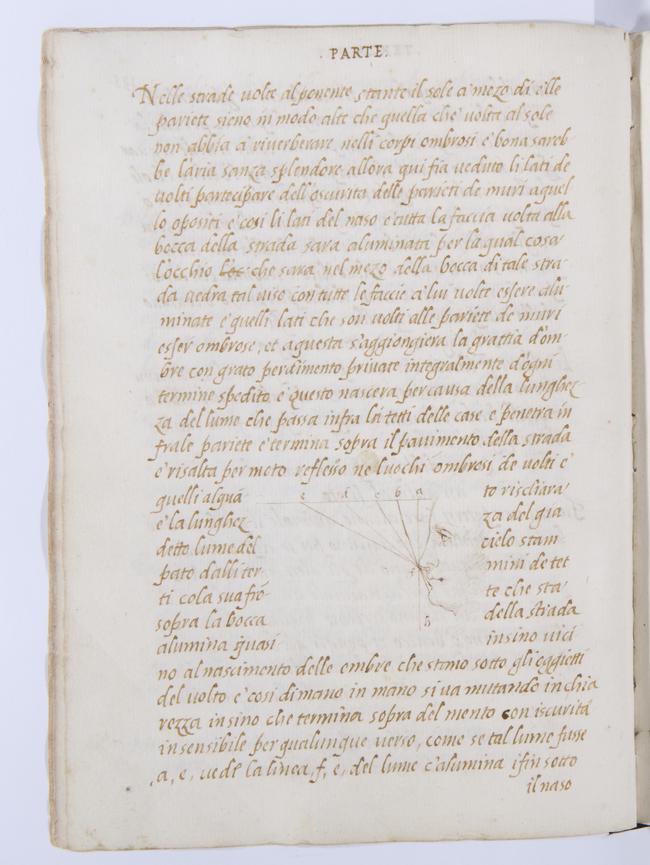 . PARTE .
Nelle strade volte al ponente stante il sole a' mezo di e'lle
pariete sieno in modo alte che quella che' volta al sole
non abbia a' riverberare nelli corpi ombrosi e' bona sareb
be l'aria sanza splendore allora qui fia veduto li lati de
volti partecipare dell'oscurita delle parieti de muri a quel
lo opositi e' cosi li lati del naso e' tutta la faccia volta alla
bocca della strada sara aluminata per la qual cosa
l'occhio che sara nel mezo della bocca di tale stra
da vedra tal viso con tutte le faccie a lui volte essere alu
minate e' quelli lati che son volti alle pariete de muri
esser ombrose, et a questa s'aggiongiera la grattia d'om
bre con grato perdimento private integralmente d'ogni
termine spedito e' questo nascera per causa della lunghez
za del lume che passa infra li tetti delle case e' penetra in
fra le pariete e' termina sopra il pavimento della strada
e' risalta per moto reflesso ne luochi ombrosi de volti e'
quelli alquã to rischiara
e' la lunghez za del gia
detto lume del cielo stam
pato dalli ter mini de tet
ti co la sua frõ te che sta
sopra la bocca della strada
alumina quasi insino vici
e d c b a
f
h
no al nascimento delle ombre che stanno sotto gli oggietti
del volto e' cosi di mano in mano si va mutando in chia
rezza insino che termina sopra del mento con iscurità
insensibile per qualunque verso, come se tal lume fusse
, a, e, vede la linea, f, e, del lume c'alumina ifin sotto
il naso